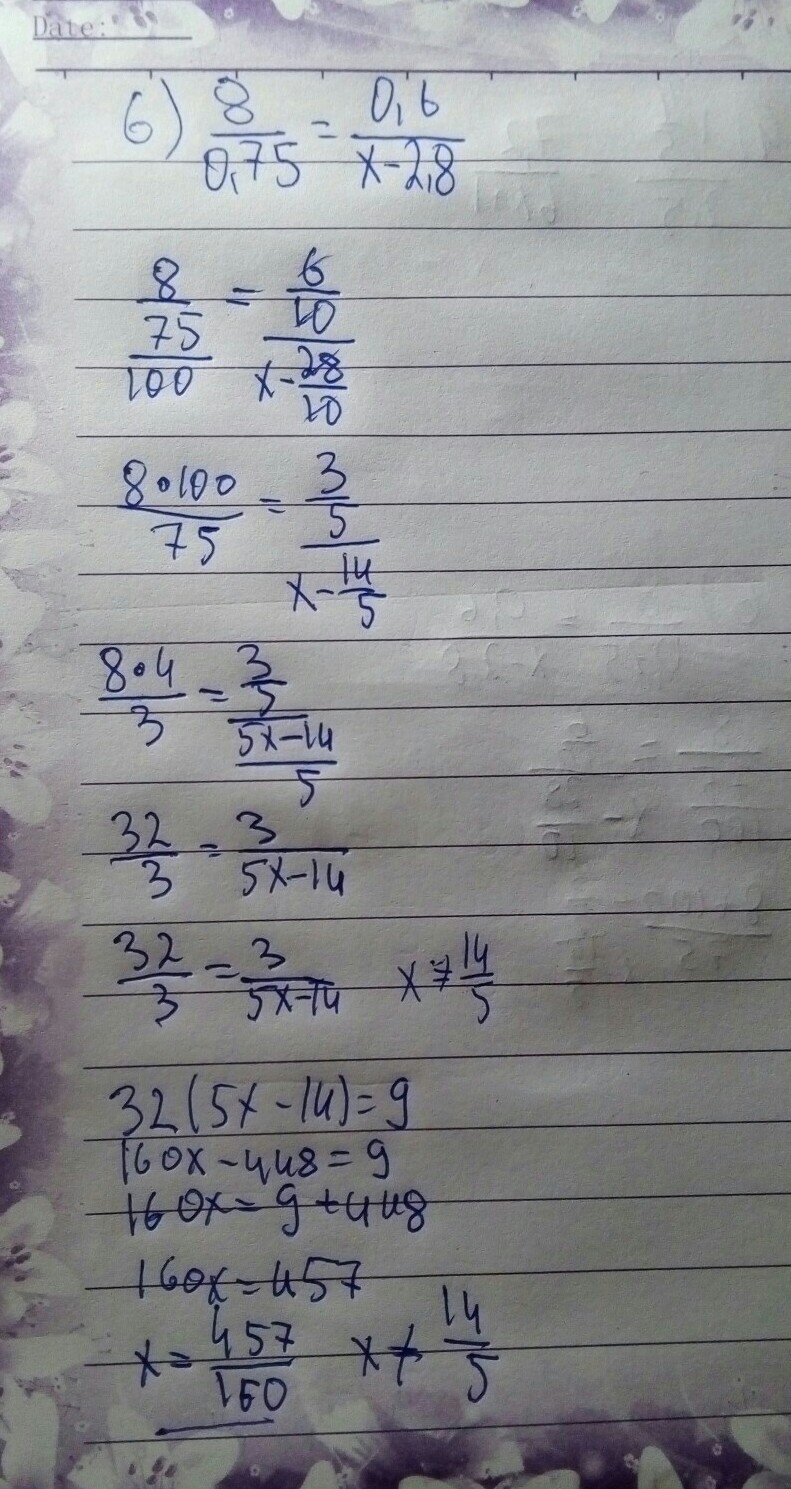 Date:
6) 8/0,75 = 0,6/(x-2,8)
8/(75/100) = (6/10)/(x-28/10)
8·100/75 = (3/5)/(x-14/5)
8·4/3 = (3/5)/((5x-14)/5)
32/3 = 3/(5x-14)
32/3 = 3/(5x-14) x≠14/5
32(5x-14)=9
160x-448=9
160x=9+448
160x=457
x=457/160 x≠14/5